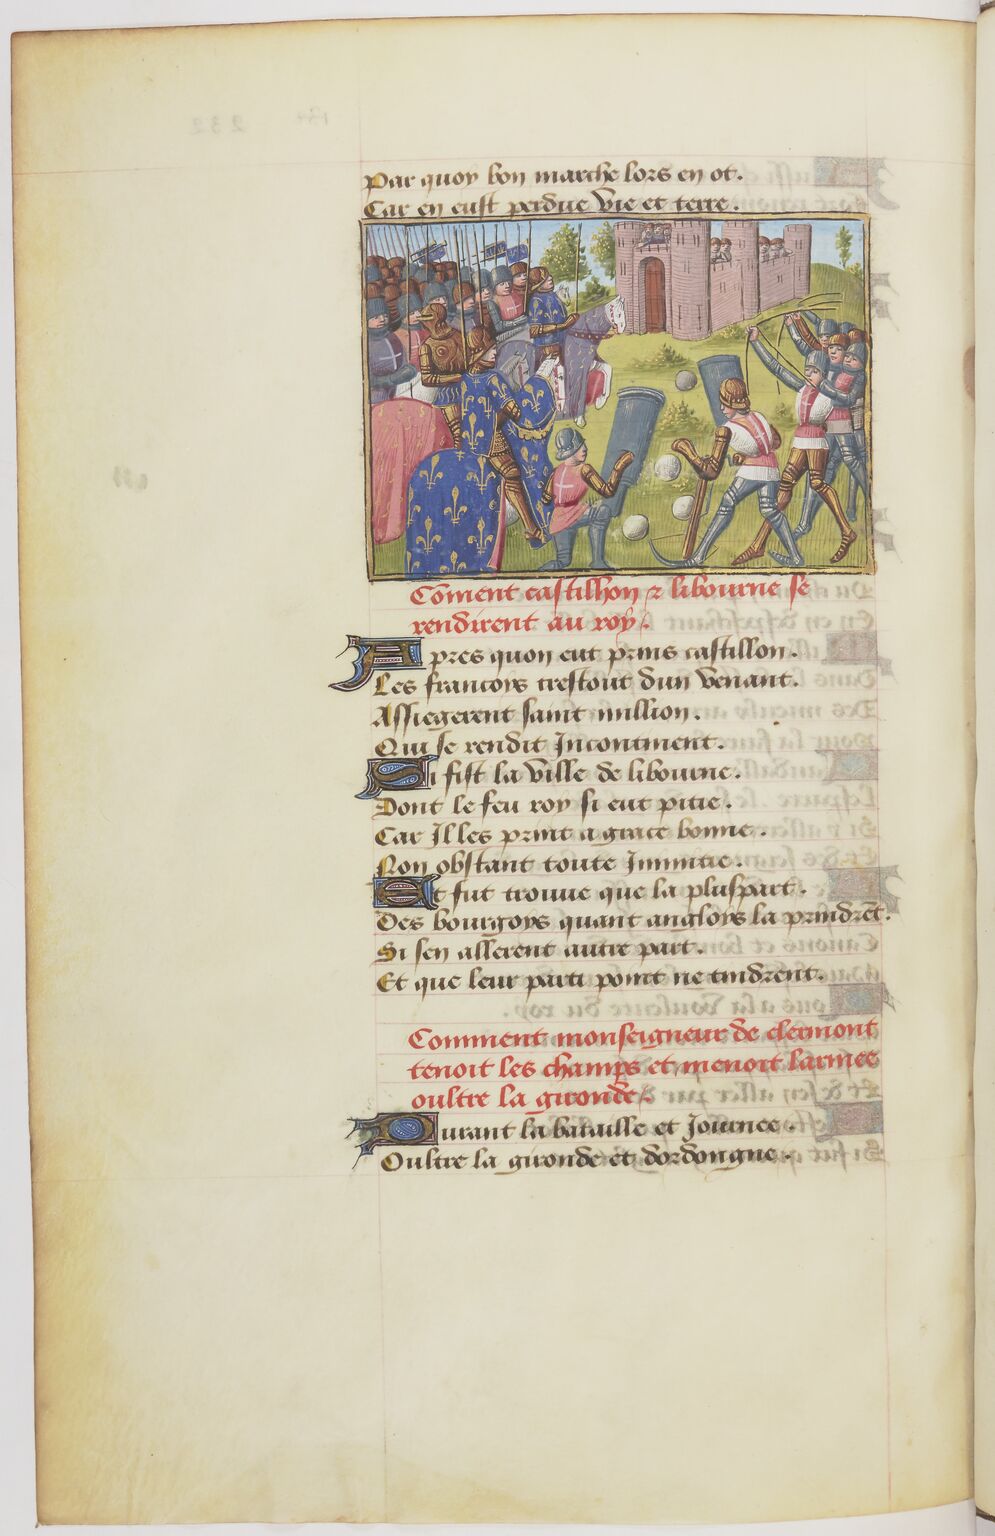 Par quoy bon marche lors en ot.
Car en eust perdue vie et terre.
Cōment castilhon & libourne se
rendirent au roy.
Apres quon eut prins castillon.
Les francoys trestout dun venant.
Assiegerent saint million.
Qui se rendit Incontinent.
Si fist la ville de libourne.
Dont le feu roy si eut pitie.
Car Il les print a grace bonne.
Non obstant toute Inimitie.
Et fut trouue que la pluspart.
Des bourgoys quant angloys la prindrēt.
Si sen allerent autre part.
Et que leur parti point ne tindrent.
Comment monseigneur de clermont
tenoit les champs et menoit larmee
oultre la gironde.
Durant la bataille et Journee.
Oultre la gironde et dordongne.